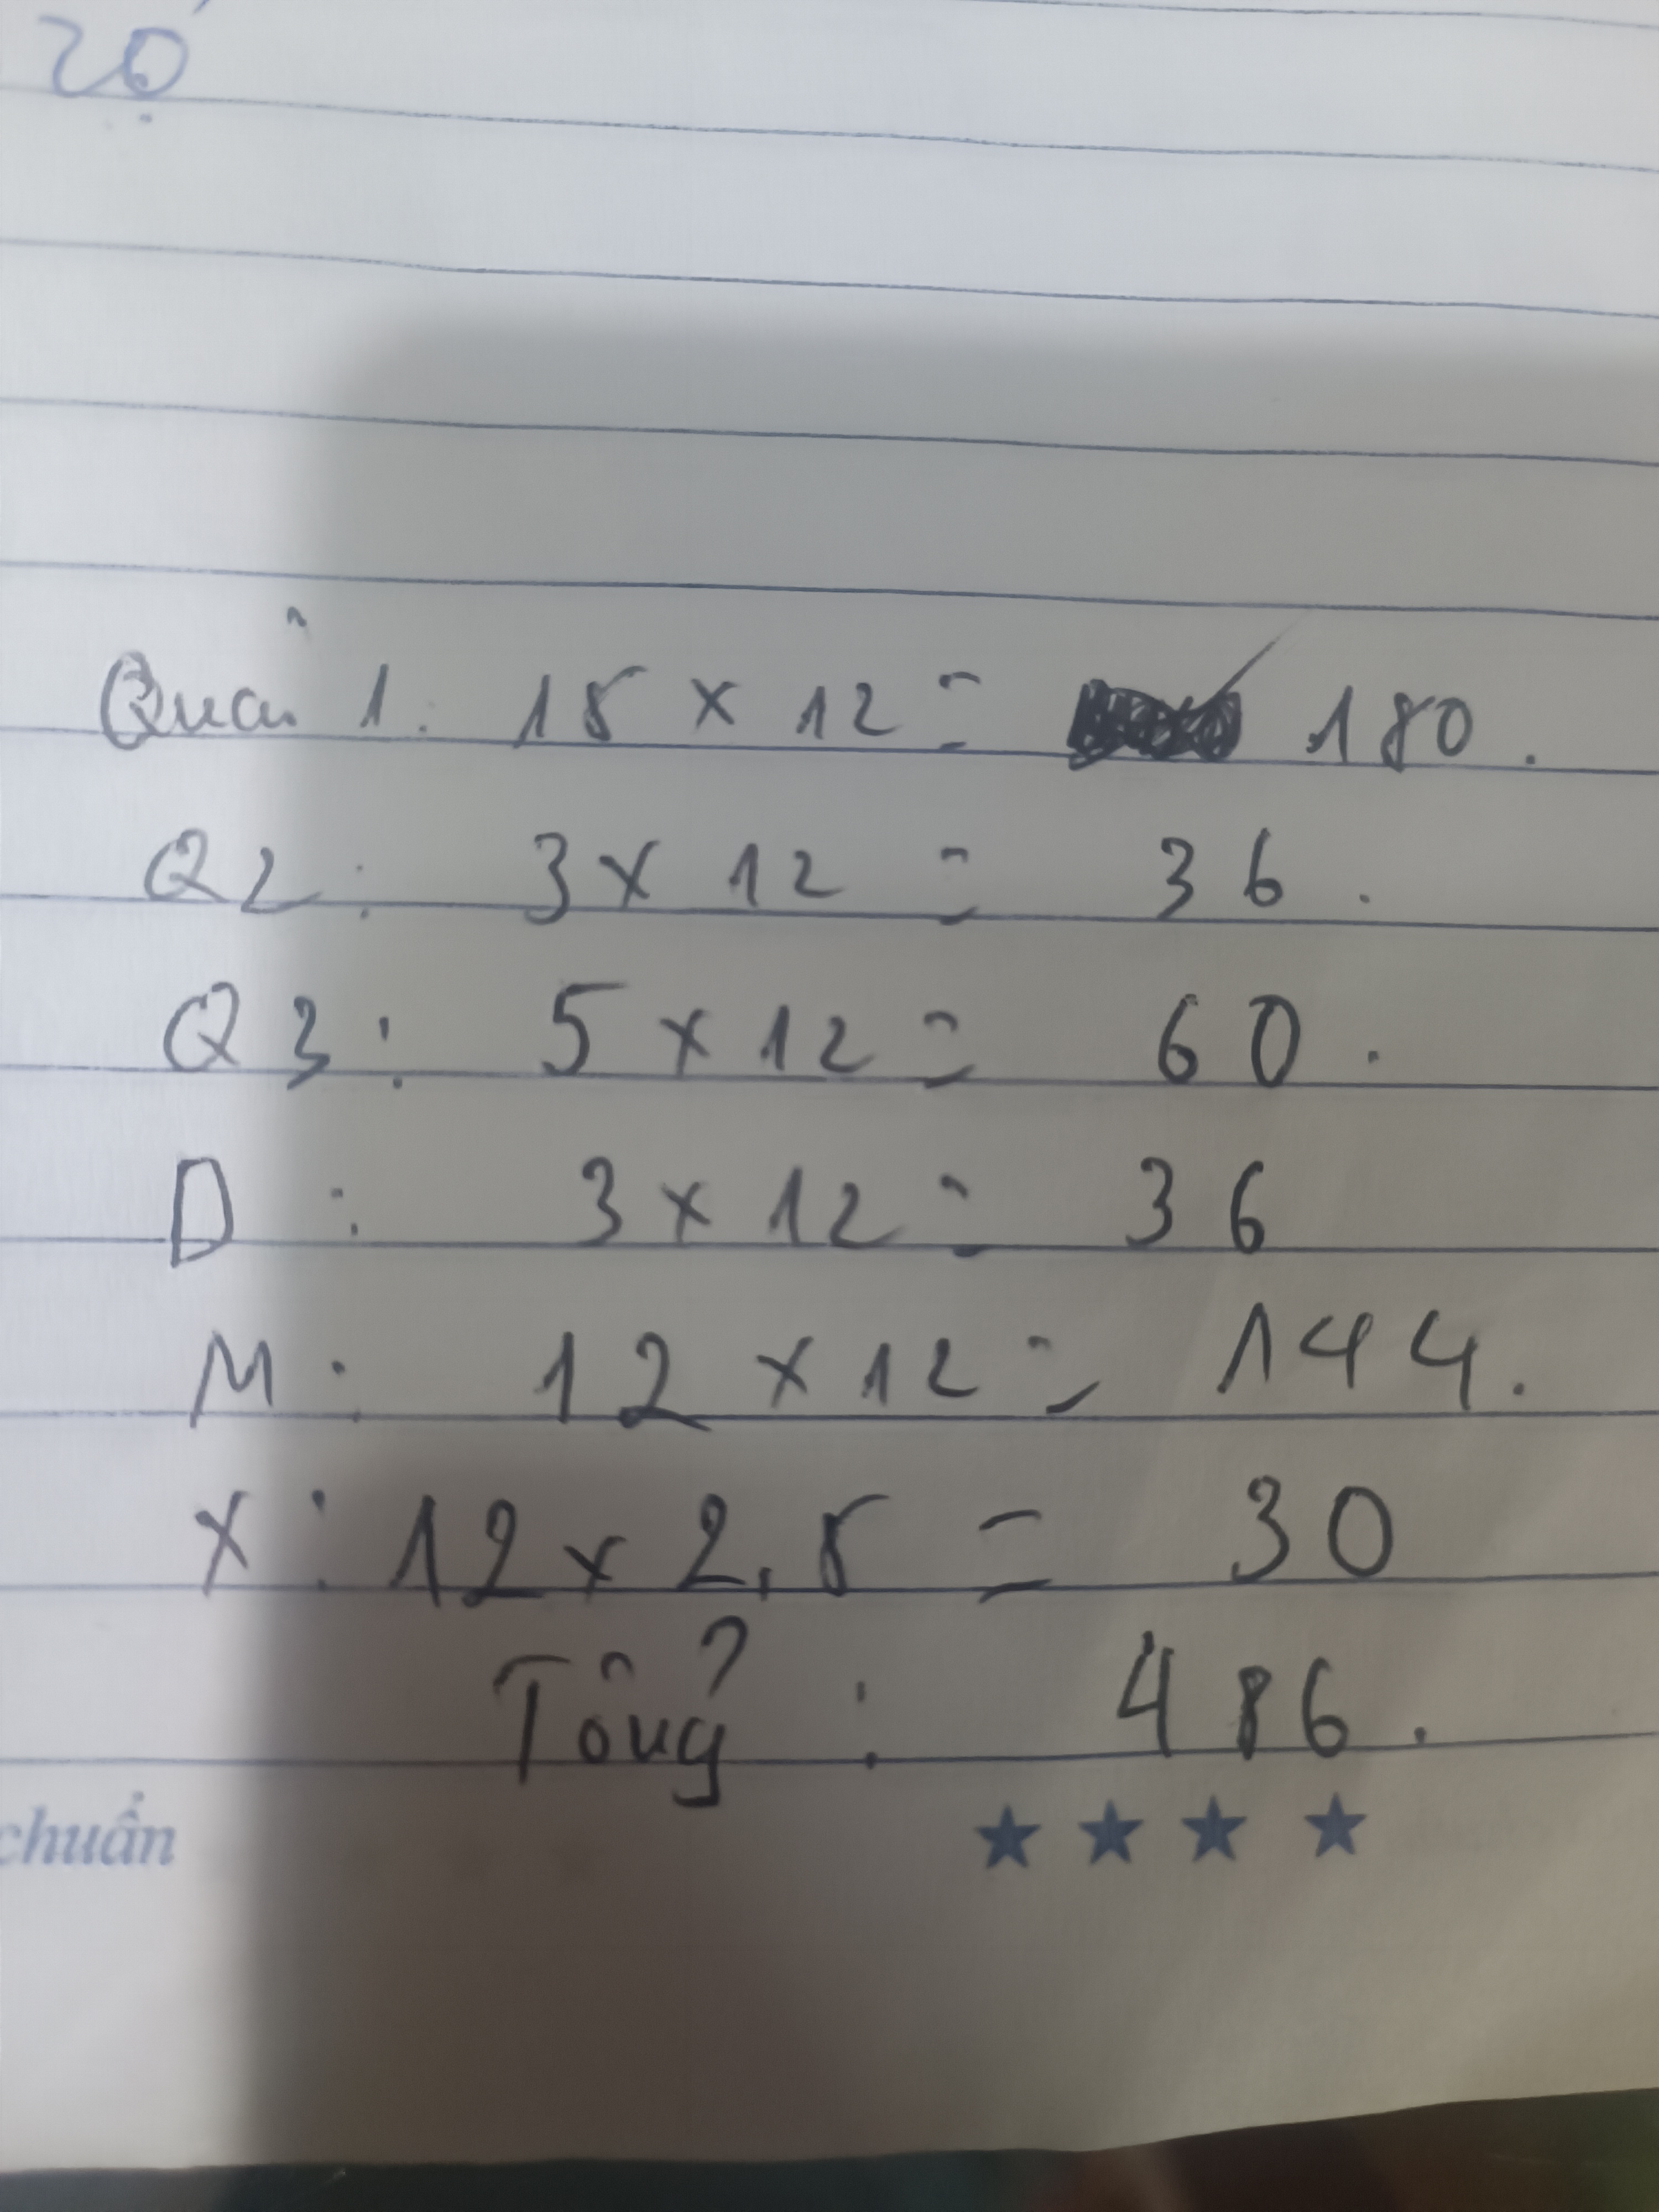 20
Quân 1. 15 x 12 = 180.
Q2: 3 x 12 = 36.
Q3: 5 x 12 = 60.
D: 3 x 12 = 36
M: 12 x 12 = 144.
X: 12 x 2,5 = 30
Tổng: 486.
chuẩn ★ ★ ★ ★